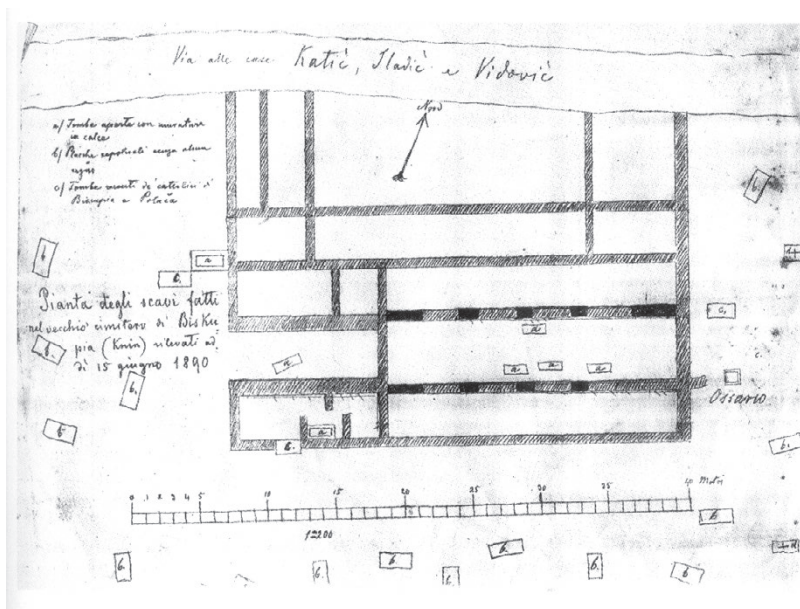 Via alle case Katić, Sladić e Vidović
Nord
a/ Tombe aperte con muratura
in calce
b/ Rasche sepolcrali senza alcun
segno
c/ Tombe recenti de' cattolici di
Biskupia e Polača
b
a
b.
Pianta degli scavi fatti
nel vecchio cimitero di Bisku
pia (Knin) rilevati ad.
di 15 giugno 1890
b.
b.
b
a
a
a
a
a
a
b.
b.
c.
c.
Ossario
b.
0 1 2 3 4 5 10 15 20 25 30 35 40 Metri
1:200
b
b.
b.
b.
b.
b.
b.
b